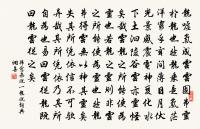 龍噓氣成雲雲固弗靈
於龍也然龍乘是氣茫
洋窮乎玄間薄日月伏
光景感震電神變化水
下土汩陵谷雲亦靈怪
矣哉雲龍之所能使為
靈也若龍之靈則非雲
之所能使為靈也然龍
弗得雲無以神其靈矣
失其所憑依信不可歟
異哉其所憑依乃其所
自為也易曰雲從龍既
曰龍雲從之矣